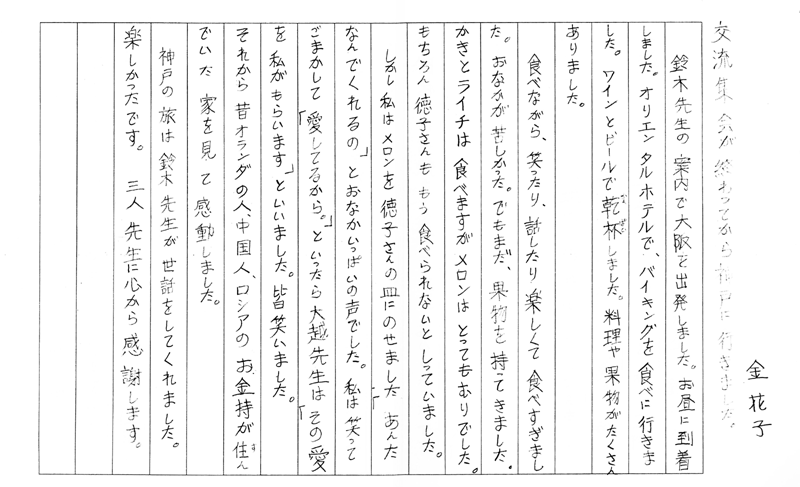 交流集会が終わってから神戸に行きました。
金花子
鈴木先生の案内で大阪を出発しました。お昼に到着
しました。オリエンタルホテルで、バイキングを食べに行きま
した。ワインとビールで乾杯しました。料理や果物がたくさん
ありました。
食べながら、笑ったり、話したり楽しくて食べすぎまし
た。おなかが苦しかった。でもまだ、果物を持ってきました。
かきとライチは食べますがメロンはとってもむりでした。
もちろん徳子さんももう食べられないとしっていました。
しかし私はメロンを徳子さんの皿にのせました「あんた
なんでくれるの」とおなかいっぱいの声でした。私は笑って
ごまかして「愛してるから。」といったら大越先生は「その愛
を私がもらいます」といいました。皆笑いました。
それから昔オランダの人、中国人、ロシアのお金持が住ん
でいた家を見て感動しました。
神戸の旅は鈴木先生が世話をしてくれました。
楽しかったです。三人先生に心から感謝します。